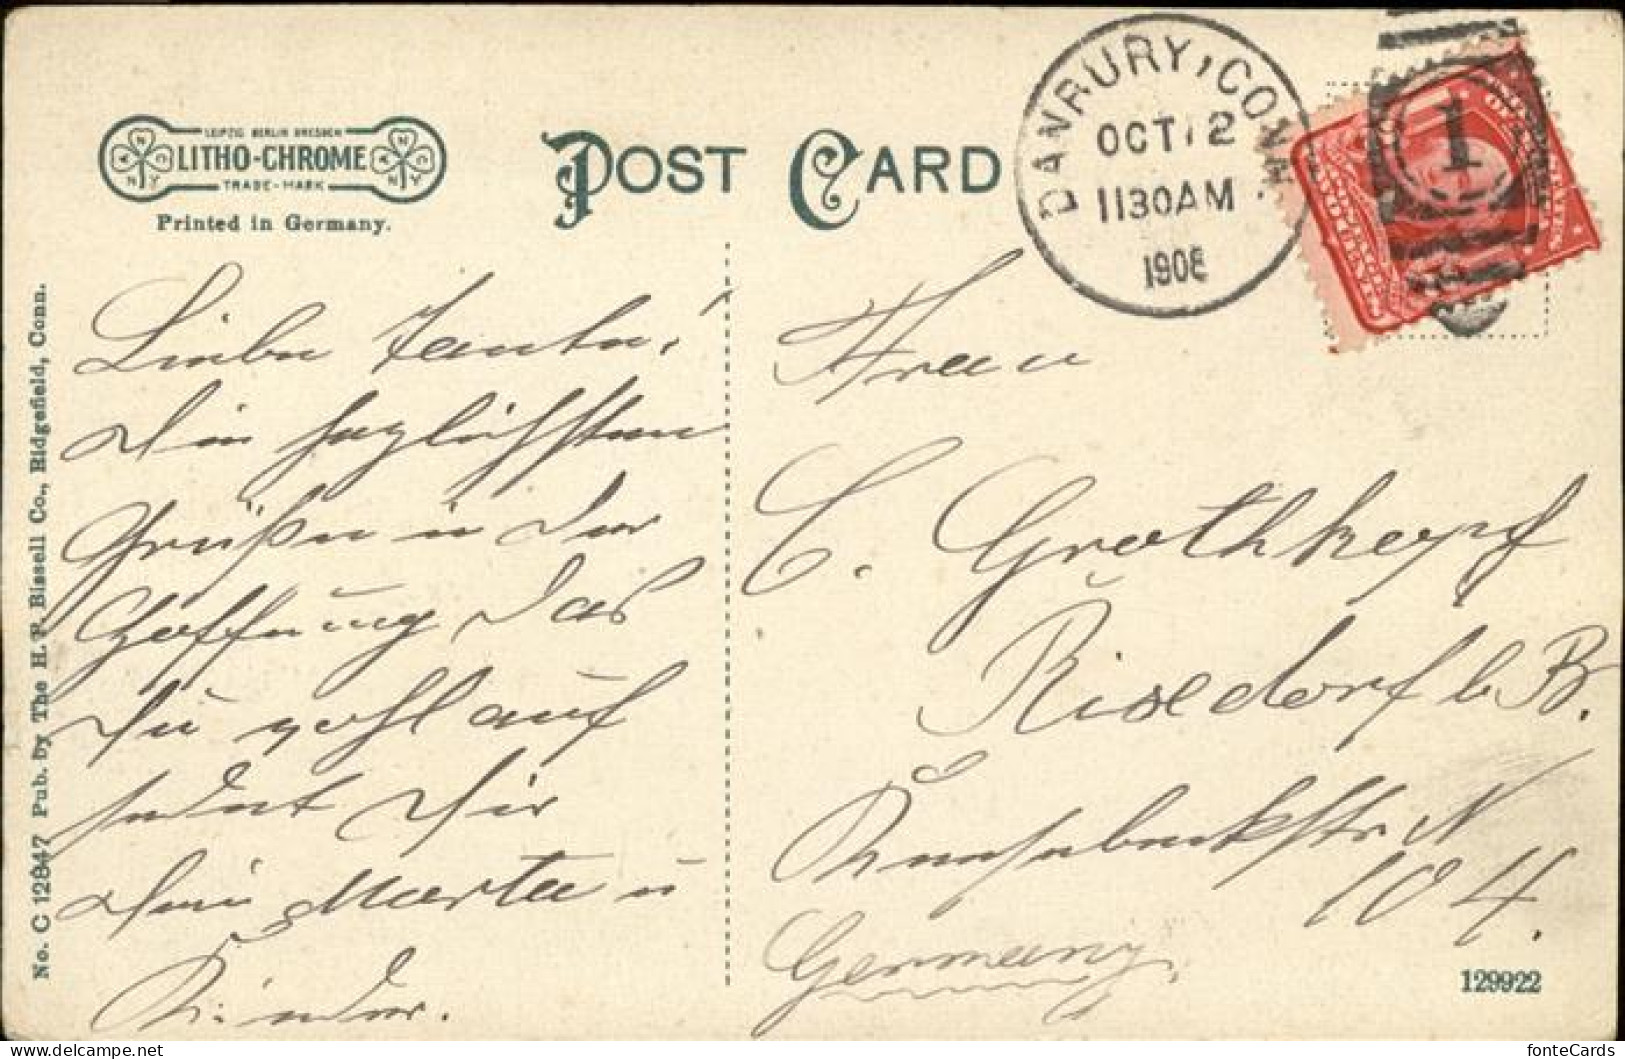 LEIPZIG BERLIN DRESDEN
LITHO-CHROME
TRADE-MARK
N Y
N Y
Printed in Germany.
POST CARD
DANBURY, CONN.
OCT 12
1130AM
1908
1
No. C 12847 Pub. by The H. P. Bissell Co., Ridgefield, Conn.
Liebe Tante,
Die herzlichsten
Grüße u in der
Hoffnung das
du wohl auf
sendet Dir
Deine Marta u
Kinder.
Frau
C. Grothkopf
Rixdorf b B.
Str N
104.
Germany.
129922
delcampe.net
fonteCards